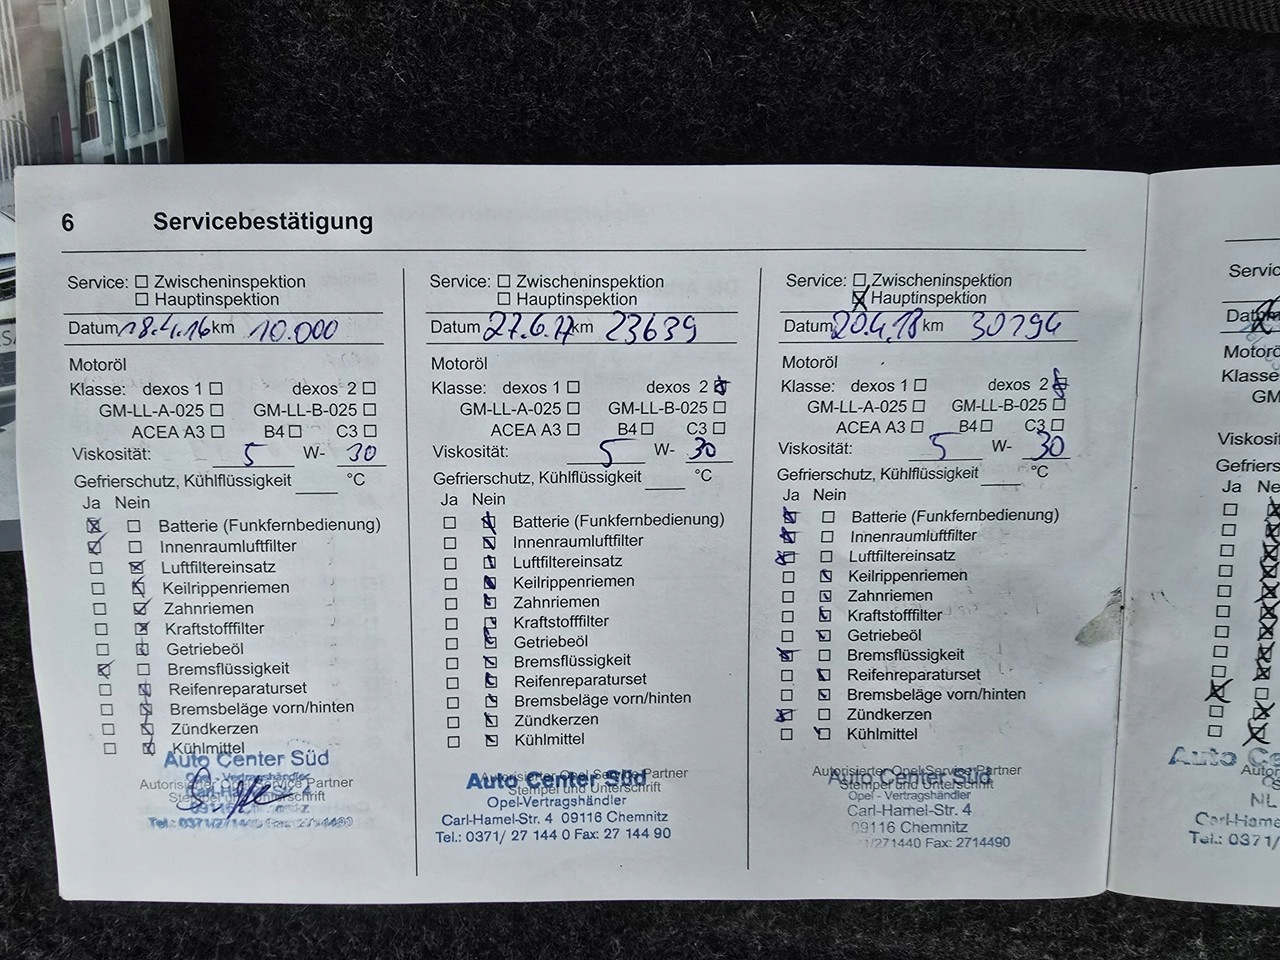 6 Servicebestätigung
Service: ☐ Zwischeninspektion
☐ Hauptinspektion
Datum 18.4.16 km 10.000
Motoröl
Klasse: dexos 1 ☐ dexos 2 ☐
GM-LL-A-025 ☐ GM-LL-B-025 ☐
ACEA A3 ☐ B4 ☐ C3 ☐
Viskosität: 5 W- 30
Gefrierschutz, Kühlflüssigkeit ____ °C
Ja Nein
☒ ☐ Batterie (Funkfernbedienung)
☒ ☐ Innenraumluftfilter
☐ ☒ Luftfiltereinsatz
☐ ☒ Keilrippenriemen
☐ ☒ Zahnriemen
☐ ☒ Kraftstofffilter
☐ ☒ Getriebeöl
☒ ☐ Bremsflüssigkeit
☐ ☒ Reifenreparaturset
☐ ☒ Bremsbeläge vorn/hinten
☐ ☒ Zündkerzen
☐ ☒ Kühlmittel
Auto Center Süd
Opel - Vertragshändler
Autorisierter Opel Service Partner
Stempel und Unterschrift
Tel.: 0371/271440 Fax: 2714490
Service: ☐ Zwischeninspektion
☐ Hauptinspektion
Datum 27.6.17 km 23639
Motoröl
Klasse: dexos 1 ☐ dexos 2 ☒
GM-LL-A-025 ☐ GM-LL-B-025 ☐
ACEA A3 ☐ B4 ☐ C3 ☐
Viskosität: 5 W- 30
Gefrierschutz, Kühlflüssigkeit ____ °C
Ja Nein
☐ ☒ Batterie (Funkfernbedienung)
☐ ☒ Innenraumluftfilter
☐ ☒ Luftfiltereinsatz
☐ ☒ Keilrippenriemen
☐ ☒ Zahnriemen
☐ ☒ Kraftstofffilter
☐ ☒ Getriebeöl
☐ ☒ Bremsflüssigkeit
☐ ☒ Reifenreparaturset
☐ ☒ Bremsbeläge vorn/hinten
☐ ☒ Zündkerzen
☐ ☒ Kühlmittel
Autorisierter Opel Service Partner
Auto Center Süd
Stempel und Unterschrift
Opel-Vertragshändler
Carl-Hamel-Str. 4 09116 Chemnitz
Tel.: 0371/ 27 144 0 Fax: 27 144 90
Service: ☐ Zwischeninspektion
☒ Hauptinspektion
Datum 20.4.18 km 30794
Motoröl
Klasse: dexos 1 ☐ dexos 2 ☒
GM-LL-A-025 ☐ GM-LL-B-025 ☐
ACEA A3 ☐ B4 ☐ C3 ☐
Viskosität: 5 W- 30
Gefrierschutz, Kühlflüssigkeit ____ °C
Ja Nein
☒ ☐ Batterie (Funkfernbedienung)
☒ ☐ Innenraumluftfilter
☒ ☐ Luftfiltereinsatz
☐ ☒ Keilrippenriemen
☐ ☒ Zahnriemen
☐ ☒ Kraftstofffilter
☐ ☒ Getriebeöl
☒ ☐ Bremsflüssigkeit
☐ ☒ Reifenreparaturset
☐ ☒ Bremsbeläge vorn/hinten
☒ ☐ Zündkerzen
☐ ☒ Kühlmittel
Autorisierter Opel Service Partner
Auto Center Süd
Stempel und Unterschrift
Opel - Vertragshändler
Carl-Hamel-Str. 4
09116 Chemnitz
/271440 Fax: 2714490
Servic
Datum
Motorö
Klasse
GM
Viskosi
Gefriers
Ja Ne
Auto Ce
Autor
NL
Carl-Hame
Tel.: 0371/